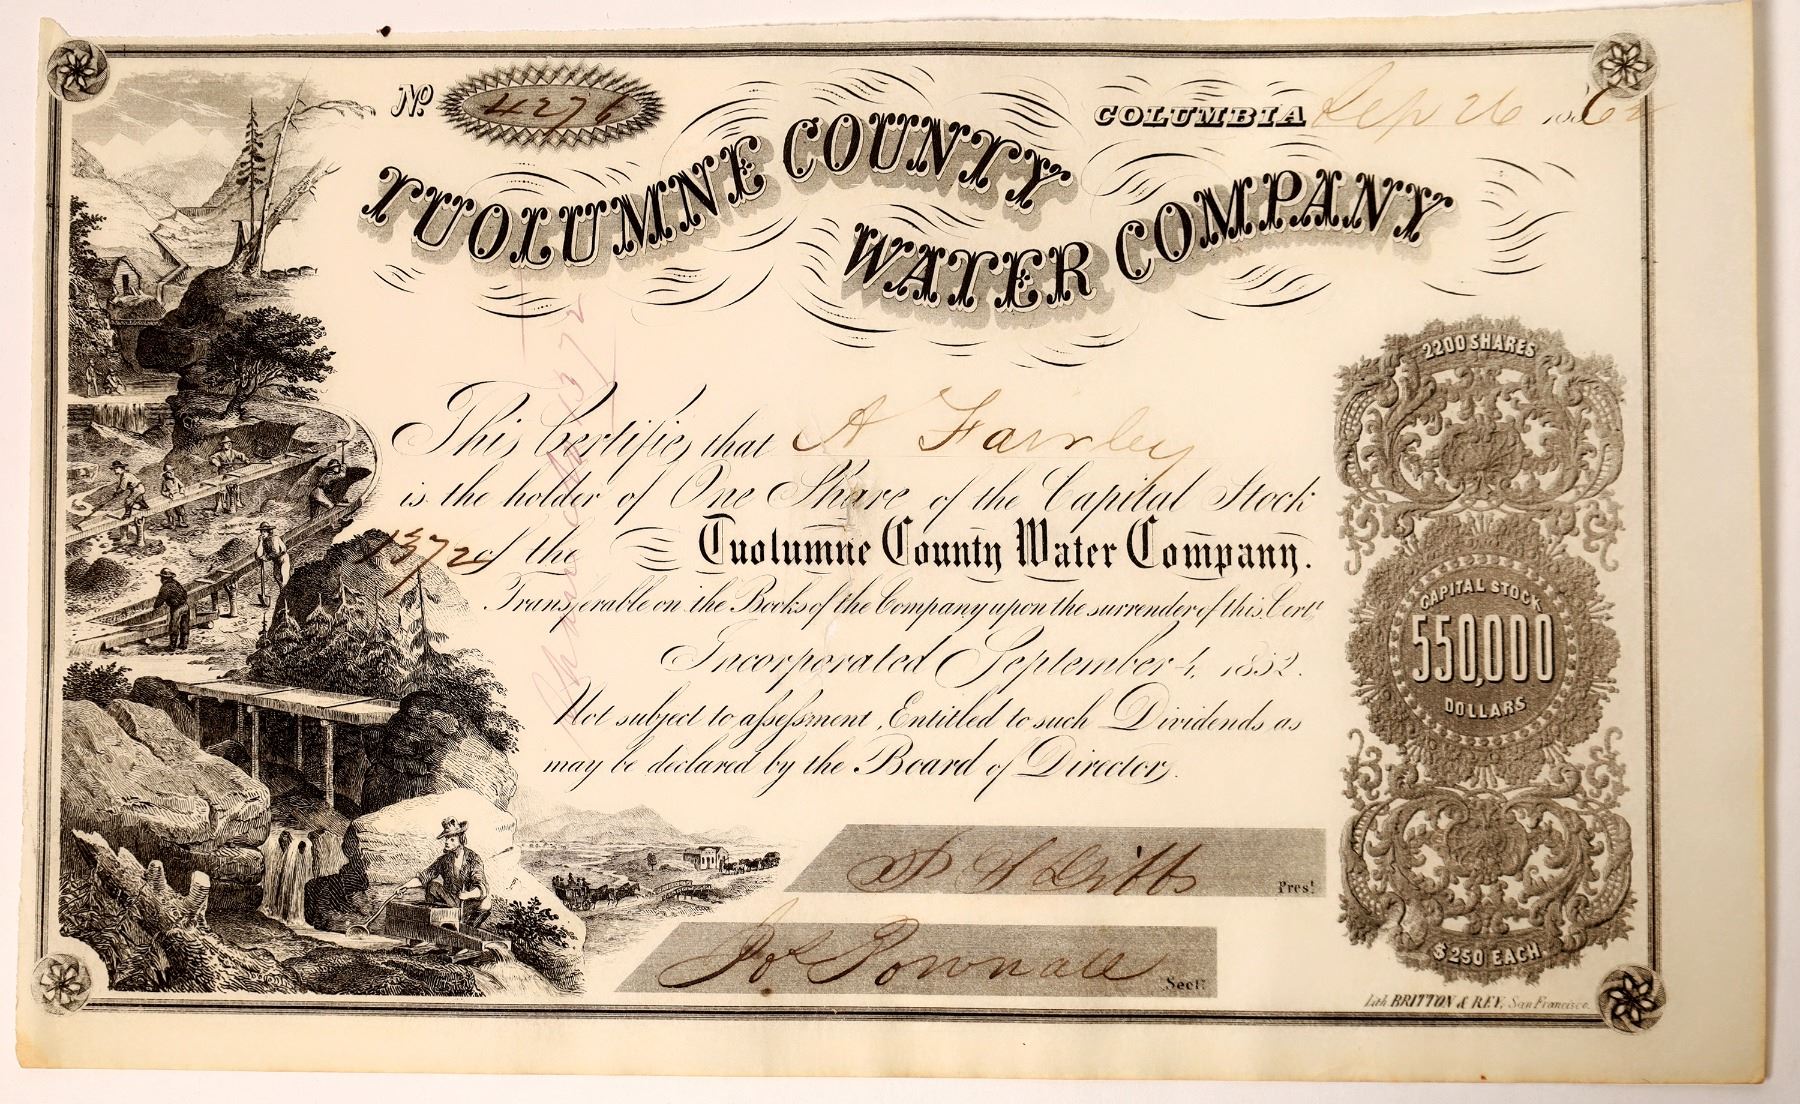 No 4276
COLUMBIA Sep 26 1862
TUOLUMNE COUNTY
WATER COMPANY
This Certifies that A Fairley
is the holder of One Share of the Capital Stock
1372 of the Tuolumne County Water Company.
Transferable on the Books of the Company upon the surrender of this Cert.
Incorporated September 4, 1852.
Not subject to assessment, Entitled to such Dividends as
may be declared by the Board of Directors.
Prest
Jos Pownall Secty
2200 SHARES
CAPITAL STOCK
550,000
DOLLARS
$250 EACH
Lith. BRITTON & REY, San Francisco.